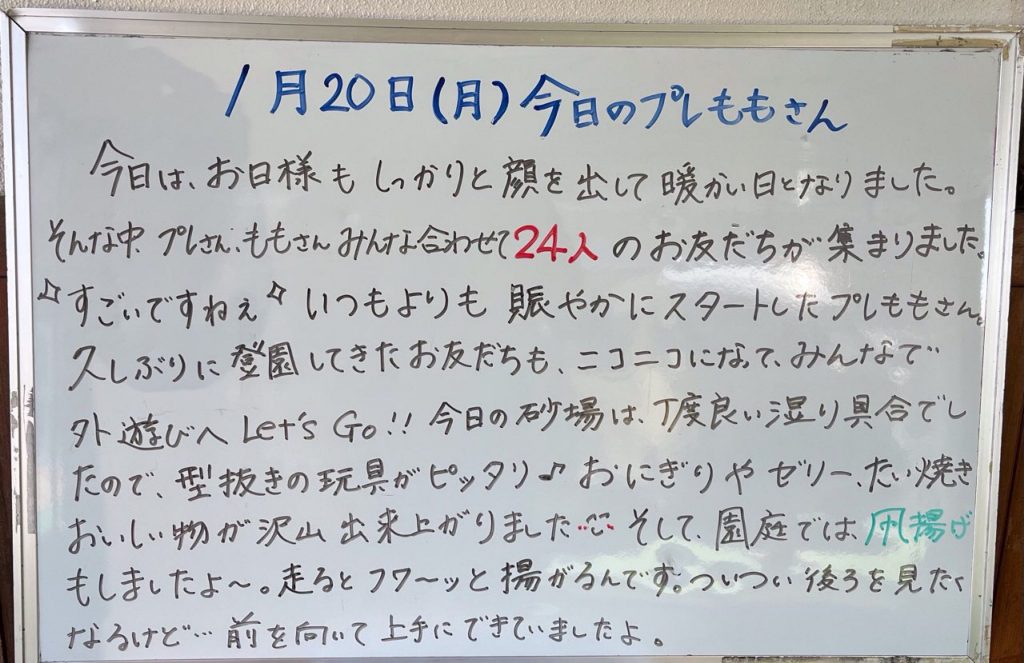 1月20日(月)今日のプレももさん
今日は、お日様もしっかりと顔を出して暖かい日となりました。
そんな中プレさん、ももさんみんな合わせて24人のお友だちが集まりました。
☆すごいですねぇ☆いつもよりも賑やかにスタートしたプレももさん。
久しぶりに登園してきたお友だちも、ニコニコになって、みんなで
外遊びへLet's Go!!今日の砂場は、丁度良い湿り具合でし
たので、型抜きの玩具がピッタリ♪おにぎりやゼリー、たい焼き
おいしい物が沢山出来上がりました そして、園庭では、凧揚げ
もしましたよ〜。走るとフワ〜ッと揚がるんです。ついつい後ろを見たく
なるけど…前を向いて上手にできていましたよ。